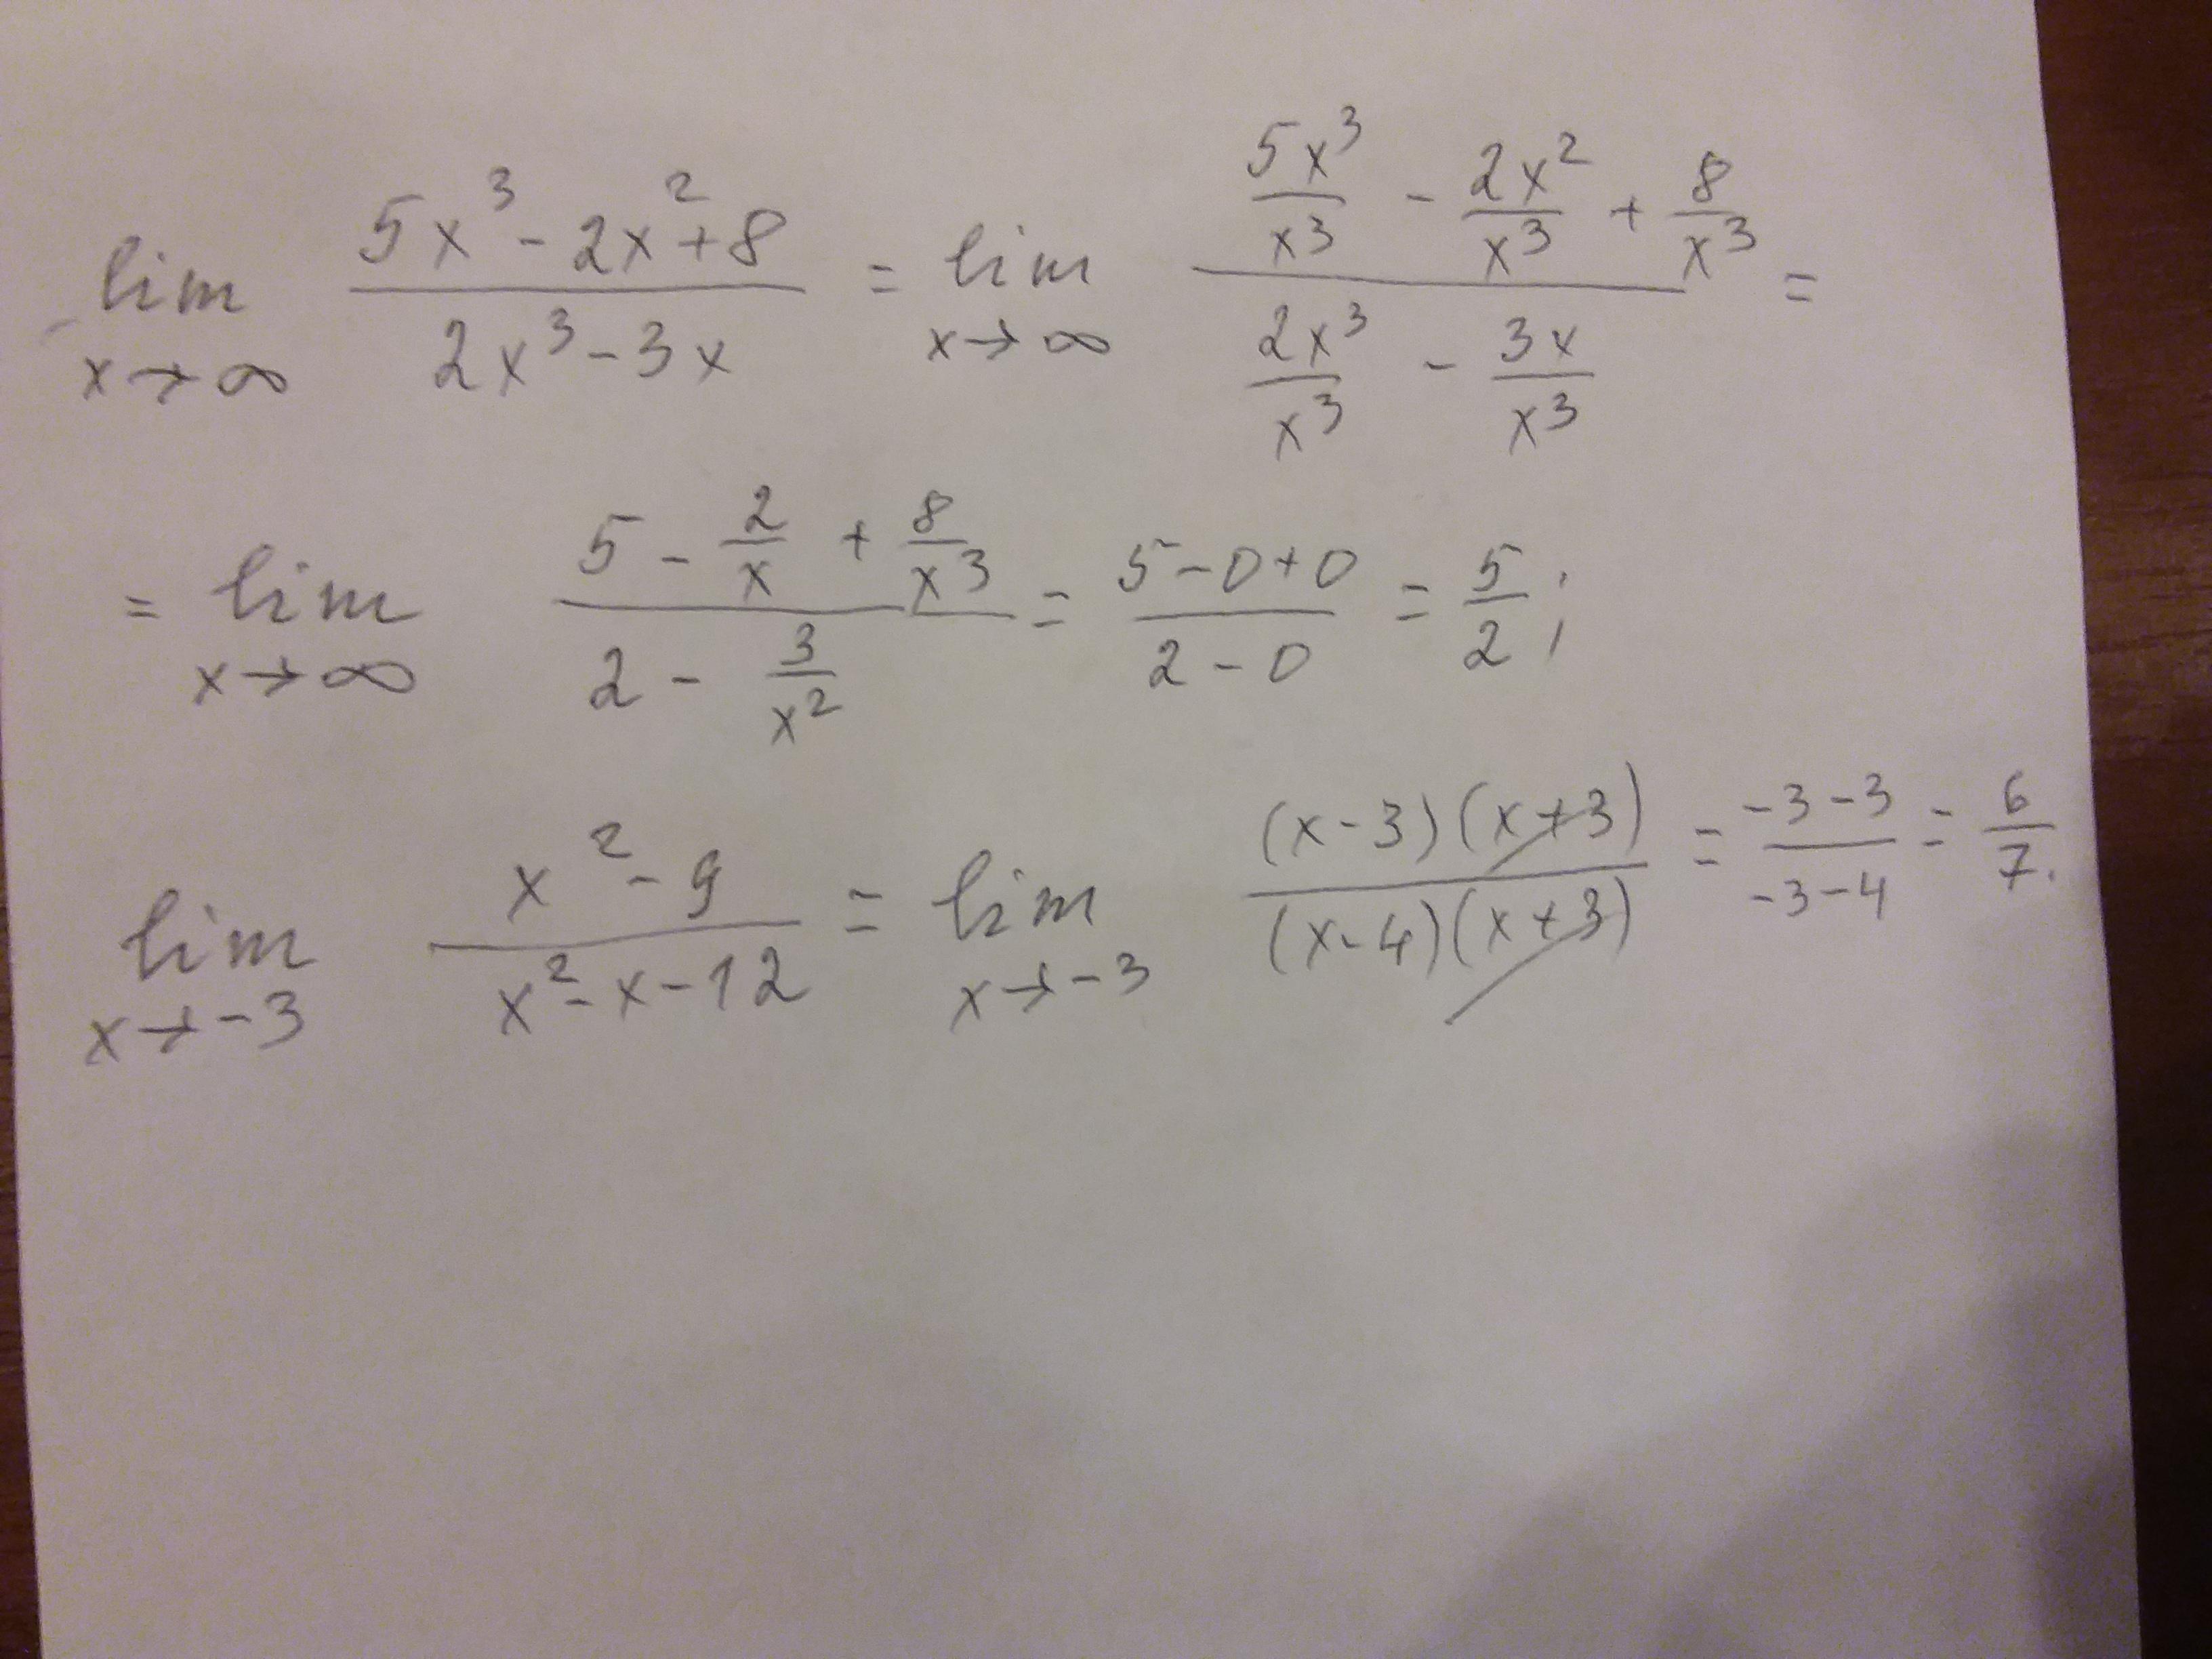 lim x→∞ (5x³ - 2x² + 8)/(2x³ - 3x) = lim x→∞ (5x³/x³ - 2x²/x³ + 8/x³)/(2x³/x³ - 3x/x³) =
= lim x→∞ (5 - 2/x + 8/x³)/(2 - 3/x²) = (5-0+0)/(2-0) = 5/2;
lim x→-3 (x² - 9)/(x² - x - 12) = lim x→-3 ((x-3)(x+3))/((x-4)(x+3)) = (-3-3)/(-3-4) = 6/7.